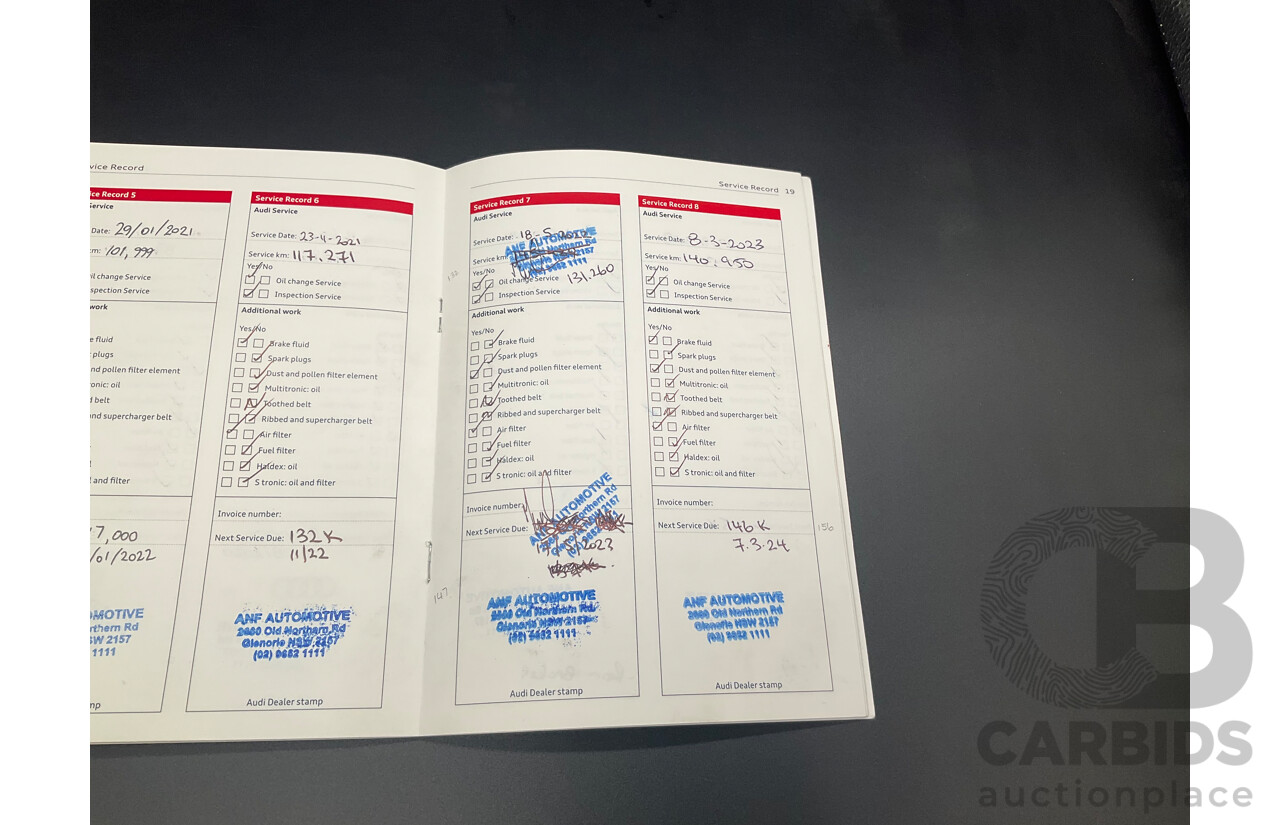 vice Record
ice Record 5
ervice
Date: 29/01/2021
m: 101,999
il change Service
spection Service
work
e fluid
plugs
and pollen filter element
onic: oil
d belt
and supercharger belt
l
l and filter
7,000
/01/2022
MOTIVE
rthern Rd
SW 2157
1111
mp
Service Record 6
Audi Service
Service Date: 23-11-2021
Service km: 117.271
Yes/No
Oil change Service
Inspection Service
Additional work
Yes/No
Brake fluid
Spark plugs
Dust and pollen filter element
Multitronic: oil
Toothed belt
Ribbed and supercharger belt
Air filter
Fuel filter
Haldex: oil
S tronic: oil and filter
Invoice number:
Next Service Due: 132K
11/22
ANF AUTOMOTIVE
2660 Old Northern Rd
Glenorie NSW 2157
(02) 9652 1111
Audi Dealer stamp
Service Record 19
Service Record 7
Audi Service
Service Date: 18-5
ANF AUTOMOTIVE
Northern Rd
Service km
2157
1111
Yes/No
Oil change Service 131.260
Inspection Service
Additional work
Yes/No
Brake fluid
Spark plugs
Dust and pollen filter element
Multitronic: oil
Toothed belt
Ribbed and supercharger belt
Air filter
Fuel filter
Haldex: oil
S tronic: oil and filter
Invoice number:
ANF AUTOMOTIVE
Northern Rd
NSW 2157
Next Service Due:
2023
147
ANF AUTOMOTIVE
2660 Old Northern Rd
Glenorie NSW 2157
(02) 9652 1111
Audi Dealer stamp
Service Record 8
Audi Service
Service Date: 8-3-2023
Service km: 140.950
Yes/No
Oil change Service
Inspection Service
Additional work
Yes/No
Brake fluid
Spark plugs
Dust and pollen filter element
Multitronic: oil
Toothed belt
Ribbed and supercharger belt
Air filter
Fuel filter
Haldex: oil
S tronic: oil and filter
Invoice number:
Next Service Due: 146K
7.3.24
156
ANF AUTOMOTIVE
2660 Old Northern Rd
Glenorie NSW 2157
(02) 9652 1111
Audi Dealer stamp
CARBIDS
auctionplace